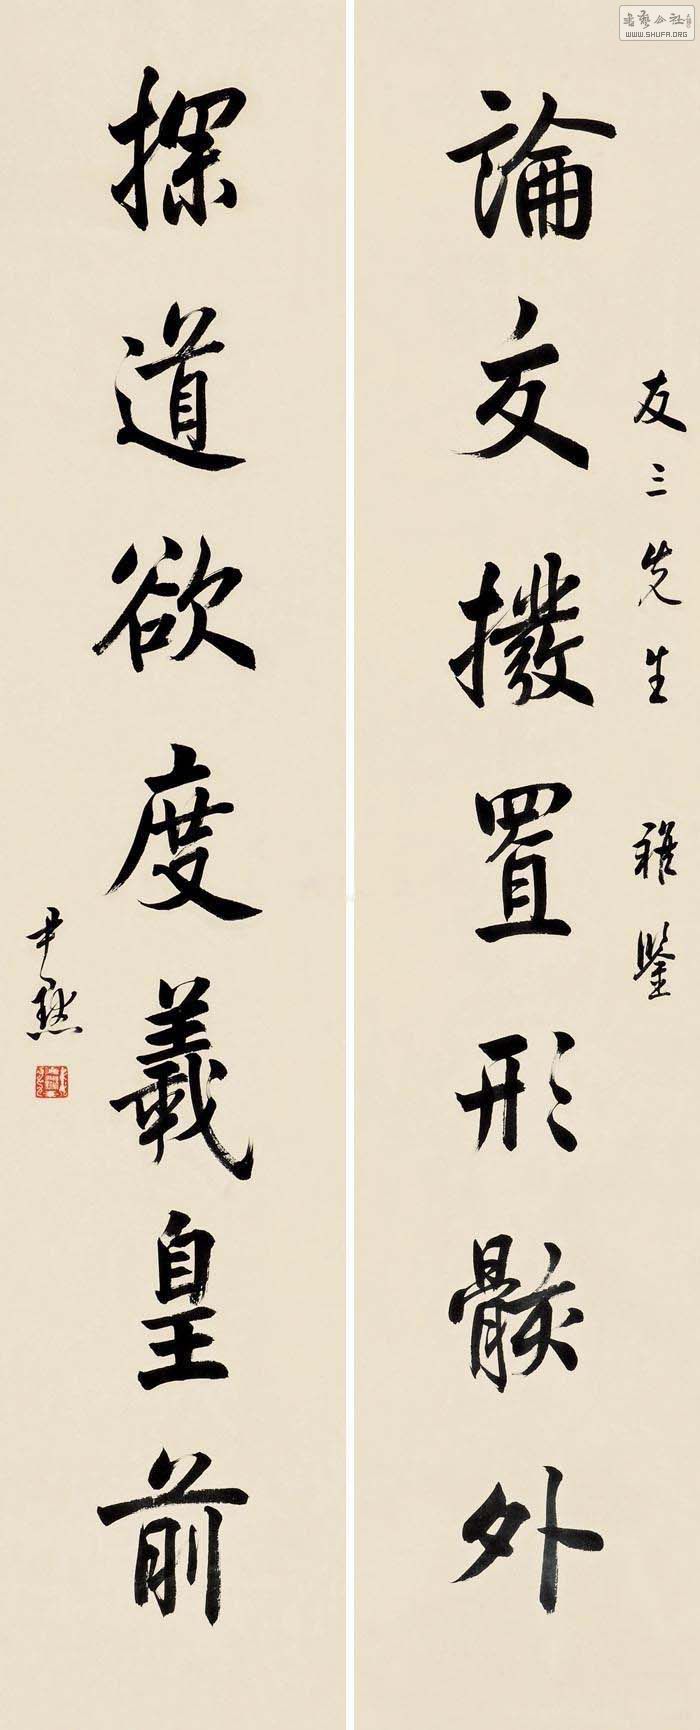 友三先生 雅鑒
論交撥置形骸外
探道欲度羲皇前
尹默
書藝公社
WWW.SHUFA.ORG